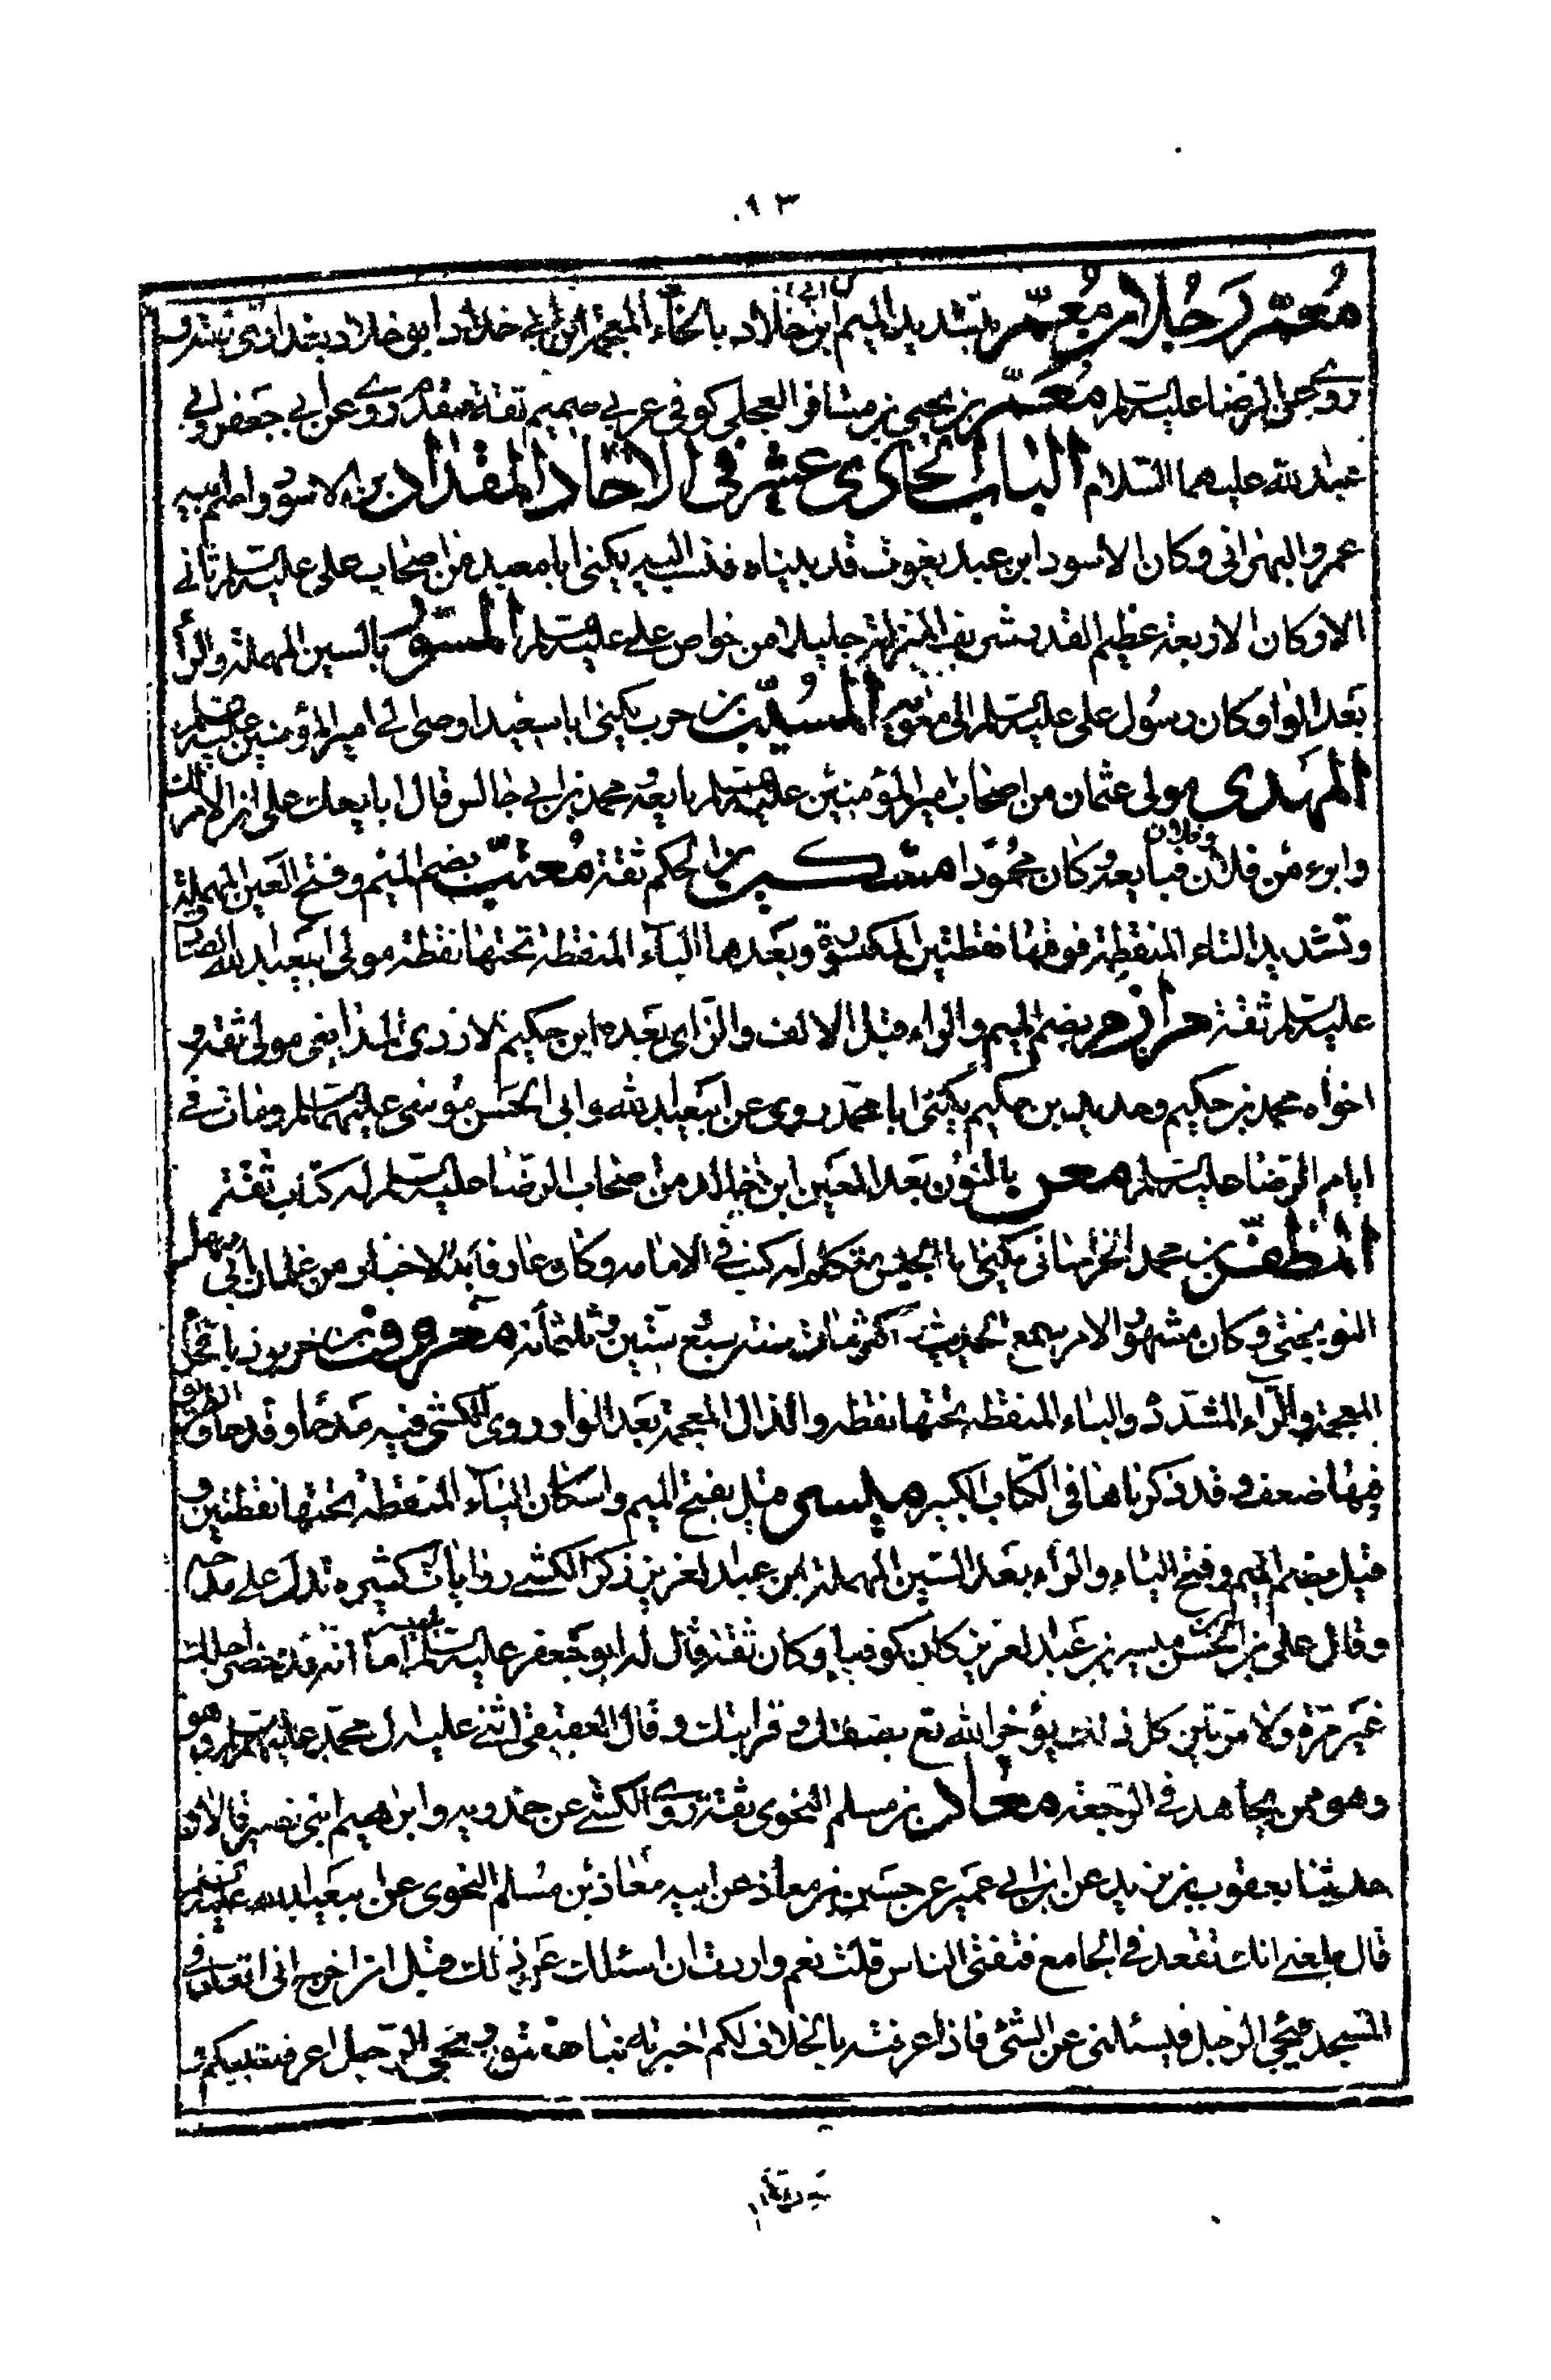 ٩٣
معمر رجلان معمر بتشديد الميم ابن خلاد بالخاء المعجمة ابن ابي خلاد ابو خلاد بغدادي ثقة
روى عن الرضا عليه السلم معمر بن يحيى بن مسافر العجلي كوفي عربي صميم ثقة متقدم روى عن ابي جعفر وابي
عبد الله عليهما السلام الباب الحادي عشر في الاحاد المقداد بن الاسود واسم ابيه
عمرو البهراني وكان الاسود ابن عبد يغوث قد تبناه فنسب اليه يكنى ابا معبد من اصحاب علي عليه السلم ثاني
الاركان الاربعة عظيم القدر شريف المنزلة جليلا من خواص علي عليه السلم المسور بالسين المهملة والراء
بعد الواو كان رسول علي عليه السلم الى معوية المسيب بن حرب يكنى ابا سعيد اوصى الى امير المؤمنين
المهدي مولى عثمان من اصحاب امير المؤمنين عليه السلم بايعه ومحمد بن ابي جالس قال ابايعك على ان الامر لك
وابرء من فلان وفلان فبايعه كان محمودا مسكين بن الحكم ثقة معتب بضم الميم وفتح العين المهملة
وتشديد التاء المنقطة فوقها نقطتين المكسورة وبعدها الباء المنقطة تحتها نقطة مولى ابيعبد الله الصادق
عليه السلم ثقة مرازم بضم الميم والراء قبل الالف والزاي بعده ابن حكيم الازدي المدايني مولى ثقة و
اخواه محمد بن حكيم وحديد بن حكيم يكنى ابا محمد روى عن ابيعبد الله وابي الحسن موسى عليهما السلم ومات في
ايام الرضا عليه السلم معن بالنون بعد العين ابن خالد من اصحاب الرضا عليه السلم له كتاب ثقة
المظفر بن محمد الخراساني يكنى ابا الجيش متكلم له كتب في الامامة وكان عارفا بالاخبار من غلمان ابي سهل
النوبختي وكان مشهور الامر سمع الحديث فاكثر مات سنة سبع ستين وثلثمائة معروف بن خربوذ بالخاء
المعجمة والراء المشددة والباء المنقطة تحتها نقطة والذال المعجمة بعد الواو روى الكشي فيه مدحا وقدحا
فيها ضعف وقد ذكرناها في الكتاب الكبير ميسر قيل بفتح الميم واسكان الياء المنقطة تحتها نقطتين و
قيل بضم الميم وفتح الياء والراء بعد السين المهملة ابن عبد العزيز ذكر الكشي روايات كثيرة تدل على مدحه
وقال علي بن الحسن ميسر بن عبد العزيز كان كوفيا وكان ثقة وقال له ابو جعفر عليه السلم يا ميسر اما انه قد حضر اجلك
غير مرة ولا مرتين كل ذلك يؤخر الله تع بصلتك قرابتك وقال العقيقي اثنى عليه ال محمد عليهم السلم وهو
وهو ممن يجاهد في الرجعة معاذ بن مسلم النحوي ثقة روى الكشي عن حمدويه وابراهيم ابنى نصير قالا
حدثنا يعقوب بن يزيد عن ابن ابي عمير عن حسين بن معاذ عن ابيه معاذ بن مسلم النحوي عن ابيعبد الله عليه السلم
قال بلغني انك تقعد في الجامع فتفتى الناس قلت نعم واردت ان اسئلك عن ذلك قبل ان اخرج اني اقعد في
المسجد فيجئ الرجل فيسئلني عن الشئ فاذا عرفته بالخلاف لكم اخبرته بما يقولون ويجئ الرجل اعرفه